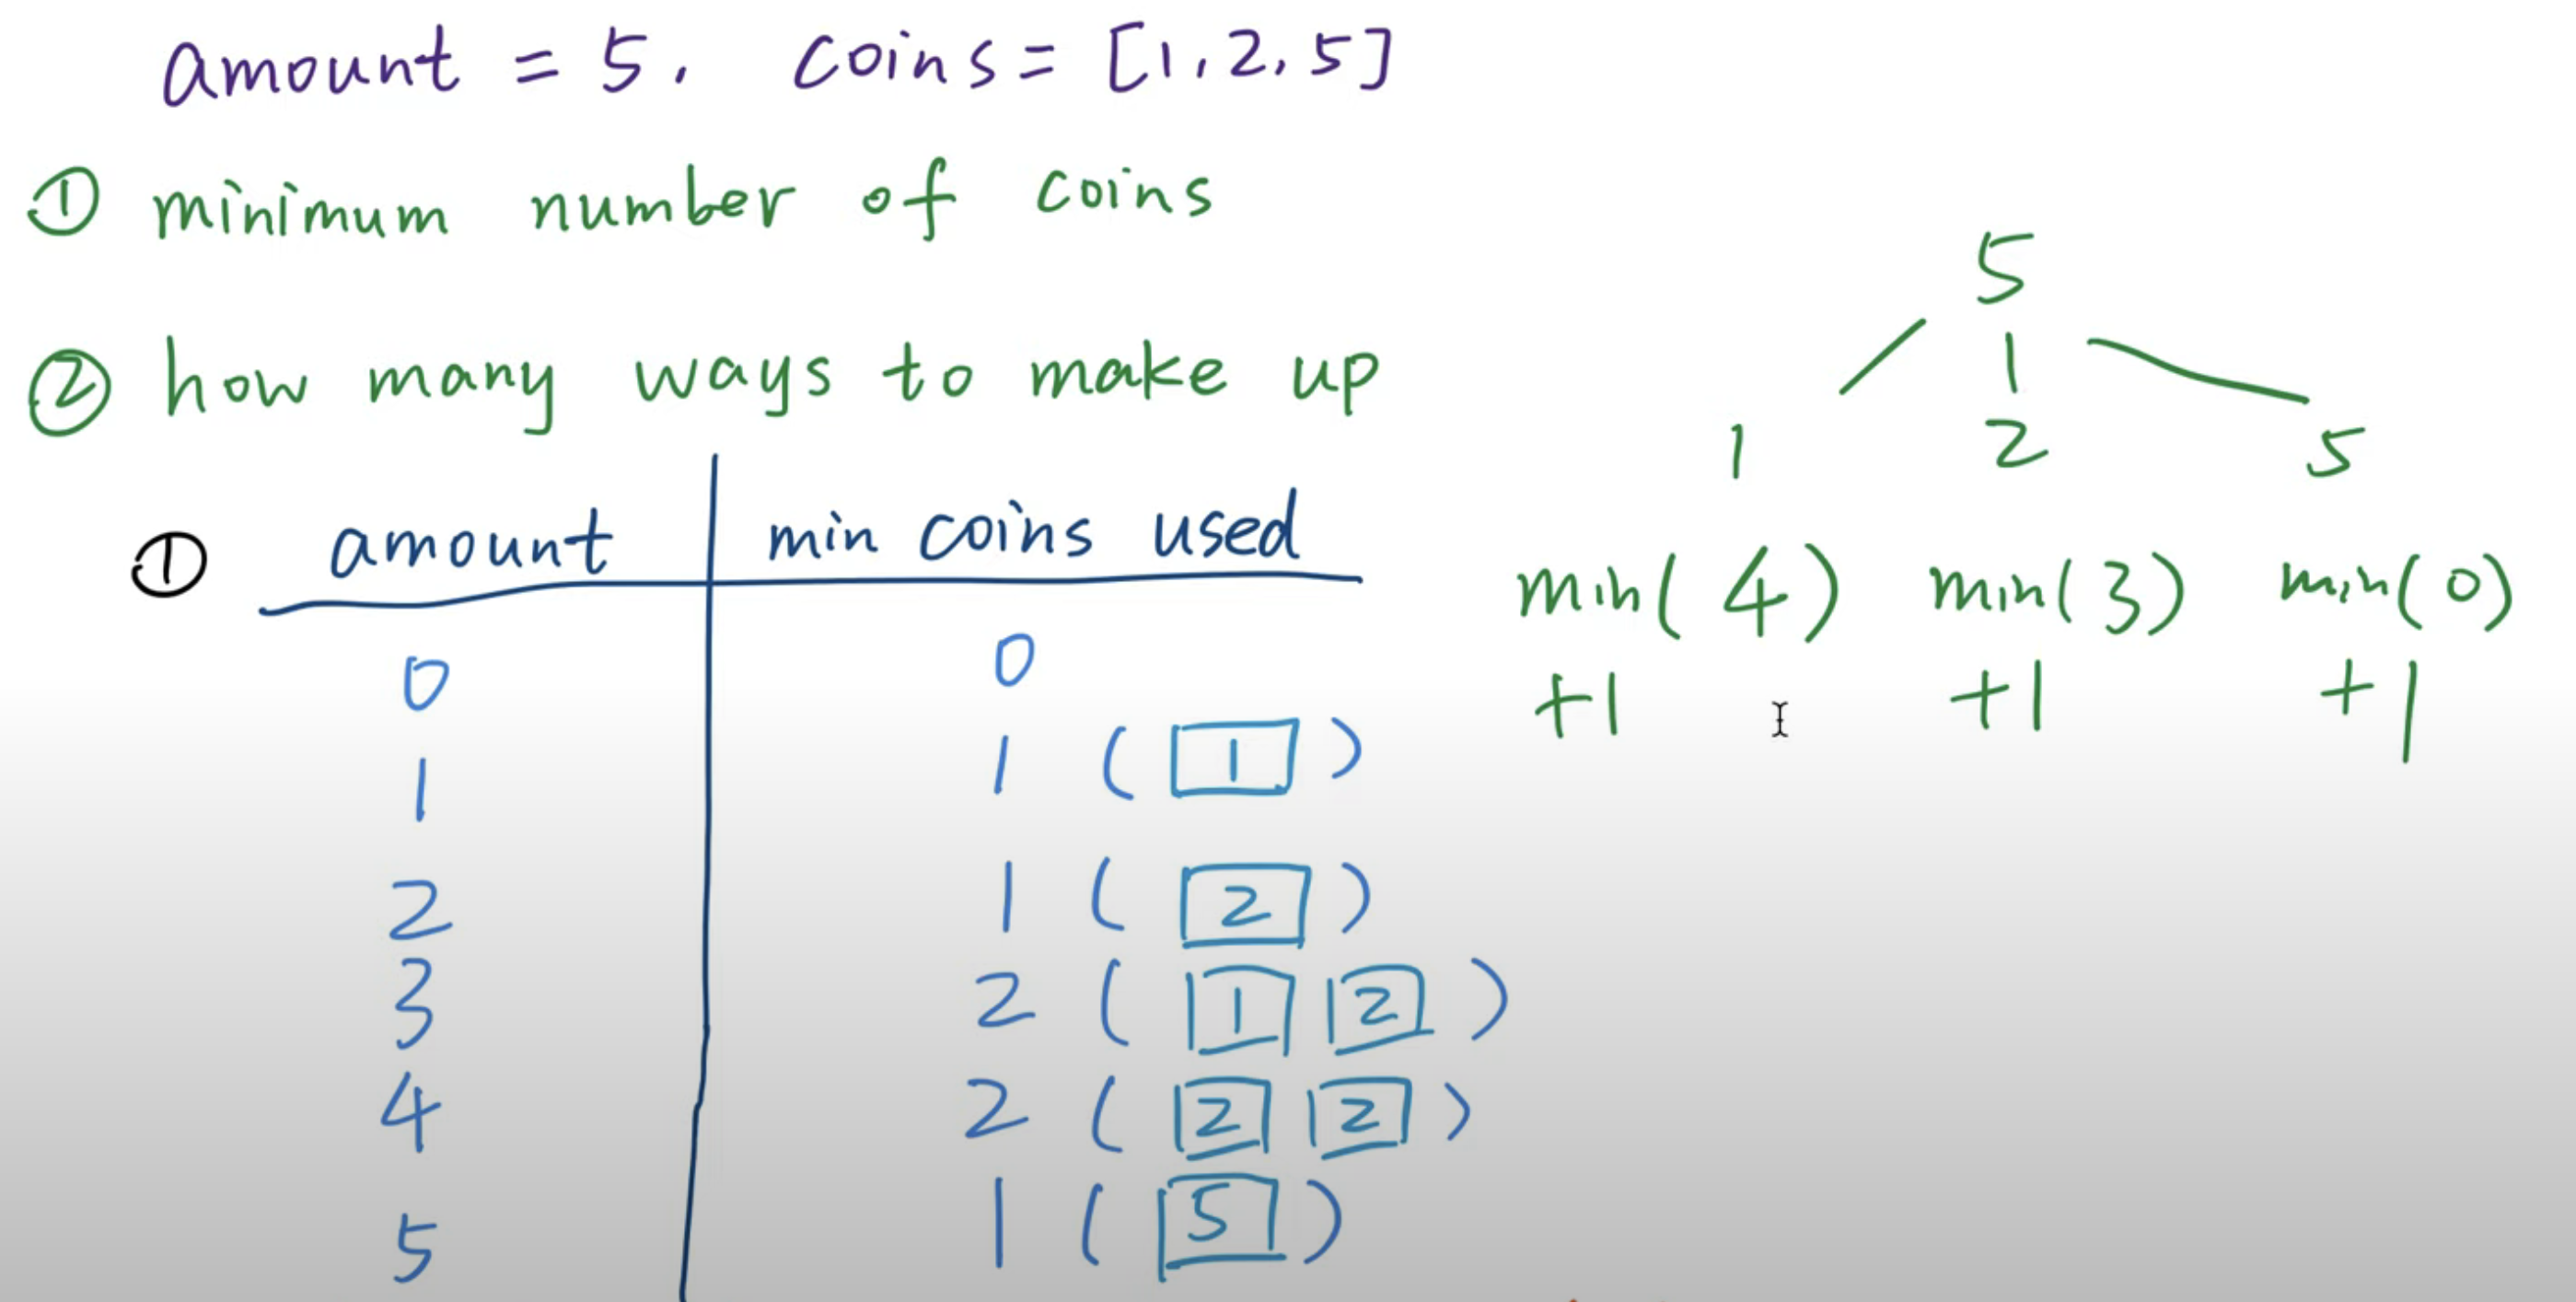 amount = 5, coins = [1, 2, 5]
① minimum number of coins
② how many ways to make up
① amount min coins used
0 0
1 1 ( 1 )
2 1 ( 2 )
3 2 ( 1 2 )
4 2 ( 2 2 )
5 1 ( 5 )
5
1 2 5
min( 4 ) min( 3 ) min( 0 )
+1 +1 +1